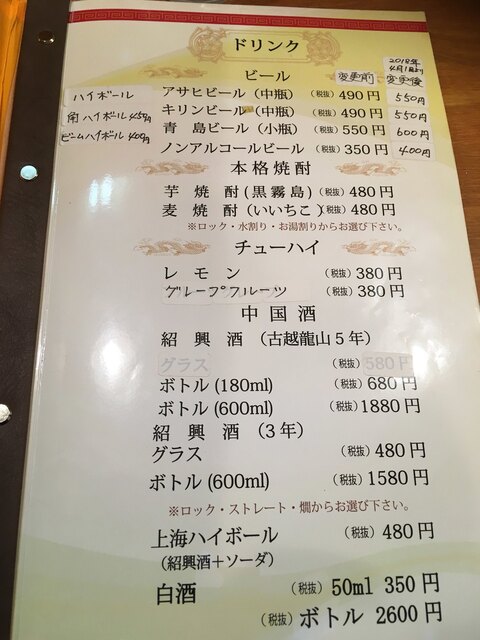 ドリンク
2018年
4月1日より
ビール 変更前 変更後
ハイボール
角ハイボール 450円
ビームハイボール 400円
アサヒビール (中瓶) (税抜) 490円 550円
キリンビール (中瓶) (税抜) 490円 550円
青 島ビール (小瓶) (税抜) 550円 600円
ノンアルコールビール (税抜) 350円 400円
本格焼酎
芋 焼 酎 (黒霧島) (税抜) 480円
麦 焼 酎 (いいちこ) (税抜) 480円
※ロック・水割り・お湯割りからお選び下さい。
チューハイ
レ モ ン (税抜) 380円
グループフルーツ (税抜) 380円
中 国 酒
紹 興 酒 (古越龍山5年)
グラス (税抜) 580円
ボトル (180ml) (税抜) 680円
ボトル (600ml) (税抜) 1880円
紹 興 酒 (3年)
グラス (税抜) 480円
ボトル (600ml) (税抜) 1580円
※ロック・ストレート・燗からお選び下さい。
上海ハイボール (税抜) 480円
(紹興酒+ソーダ)
白酒 (税抜) 50ml 350円
(税抜) ボトル 2600円